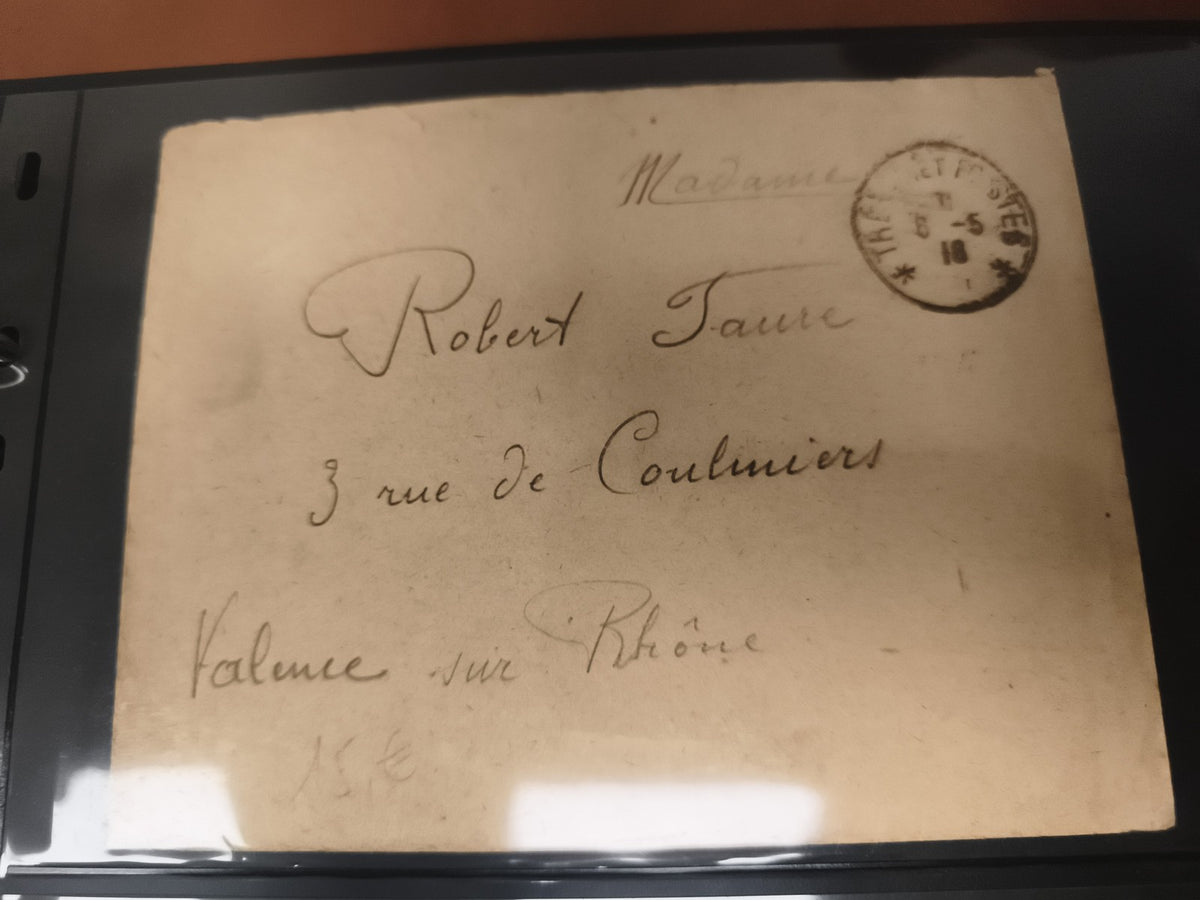 Madame
TRÉSOR ET POSTES
6 -5
18
Robert Faure
3 rue de Coulmiers
Valence sur Rhône
15 €